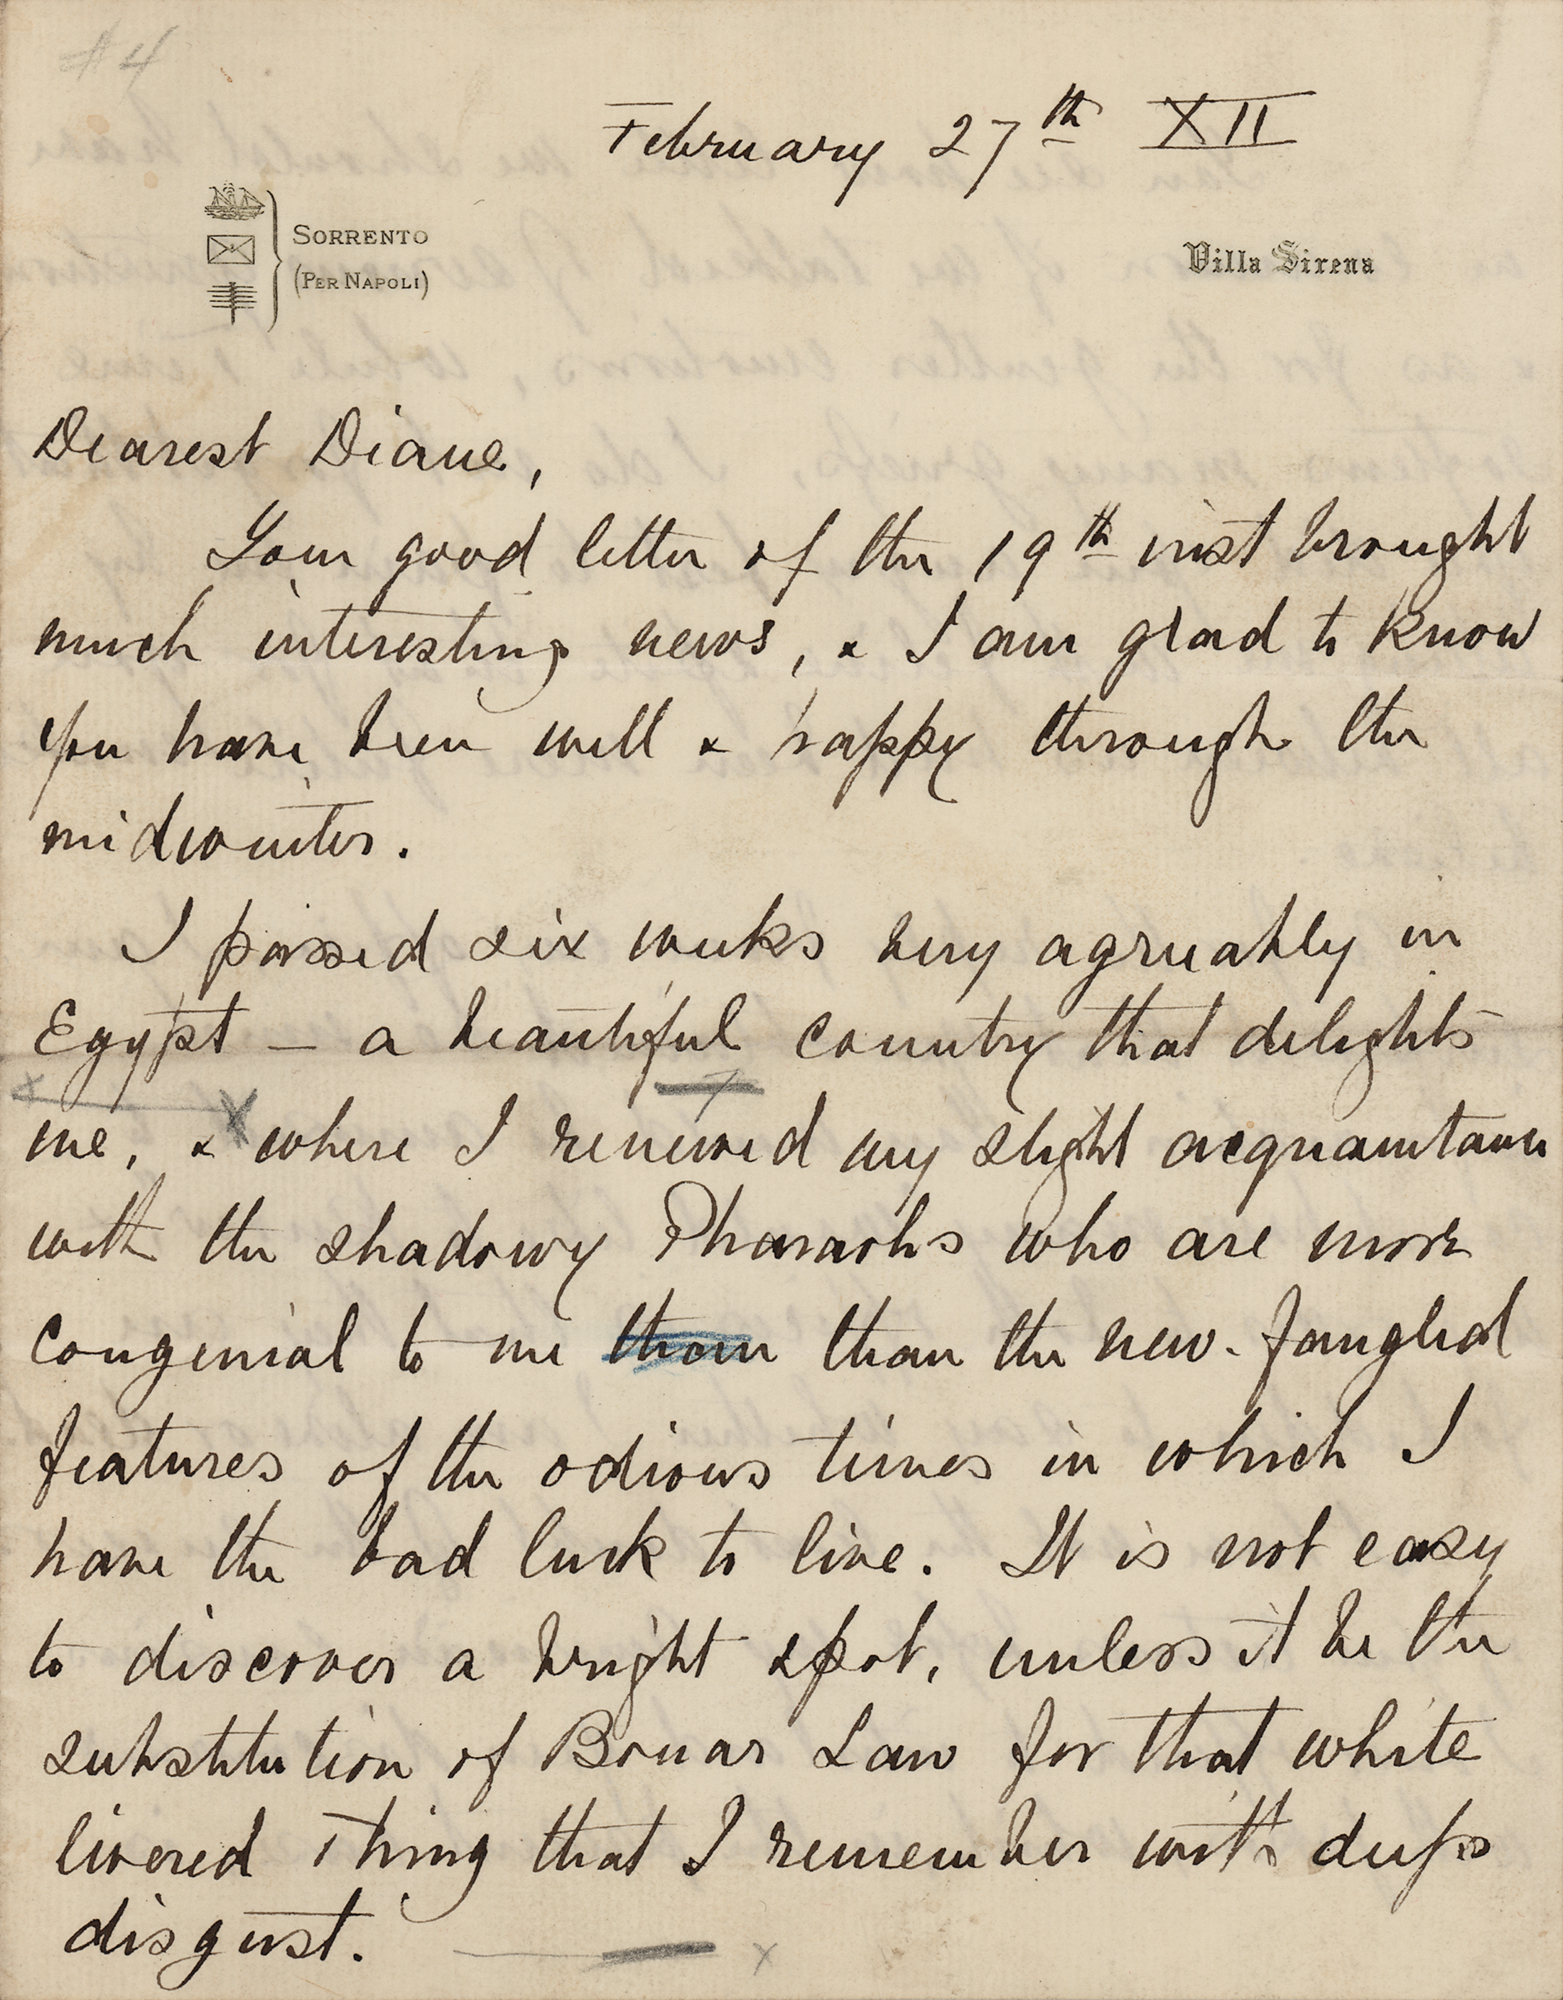 #4
February 27th XII
Sorrento
(Per Napoli)
Villa Sirena
Dearest Diane,
Your good letter of the 19th inst brought
much interesting news, & I am glad to know
you have been well & happy through the
midwinter.
I passed six weeks very agreeably in
Egypt — a beautiful country that delights
me, & where I renewed my slight acquaintance
with the shadowy Pharaohs who are more
congenial to me than the new-fangled
features of the odious times in which I
have the bad luck to live. It is not easy
to discover a bright spot, unless it be the
substitution of Bonar Law for that white
livered Thing that I remember with deep
disgust.